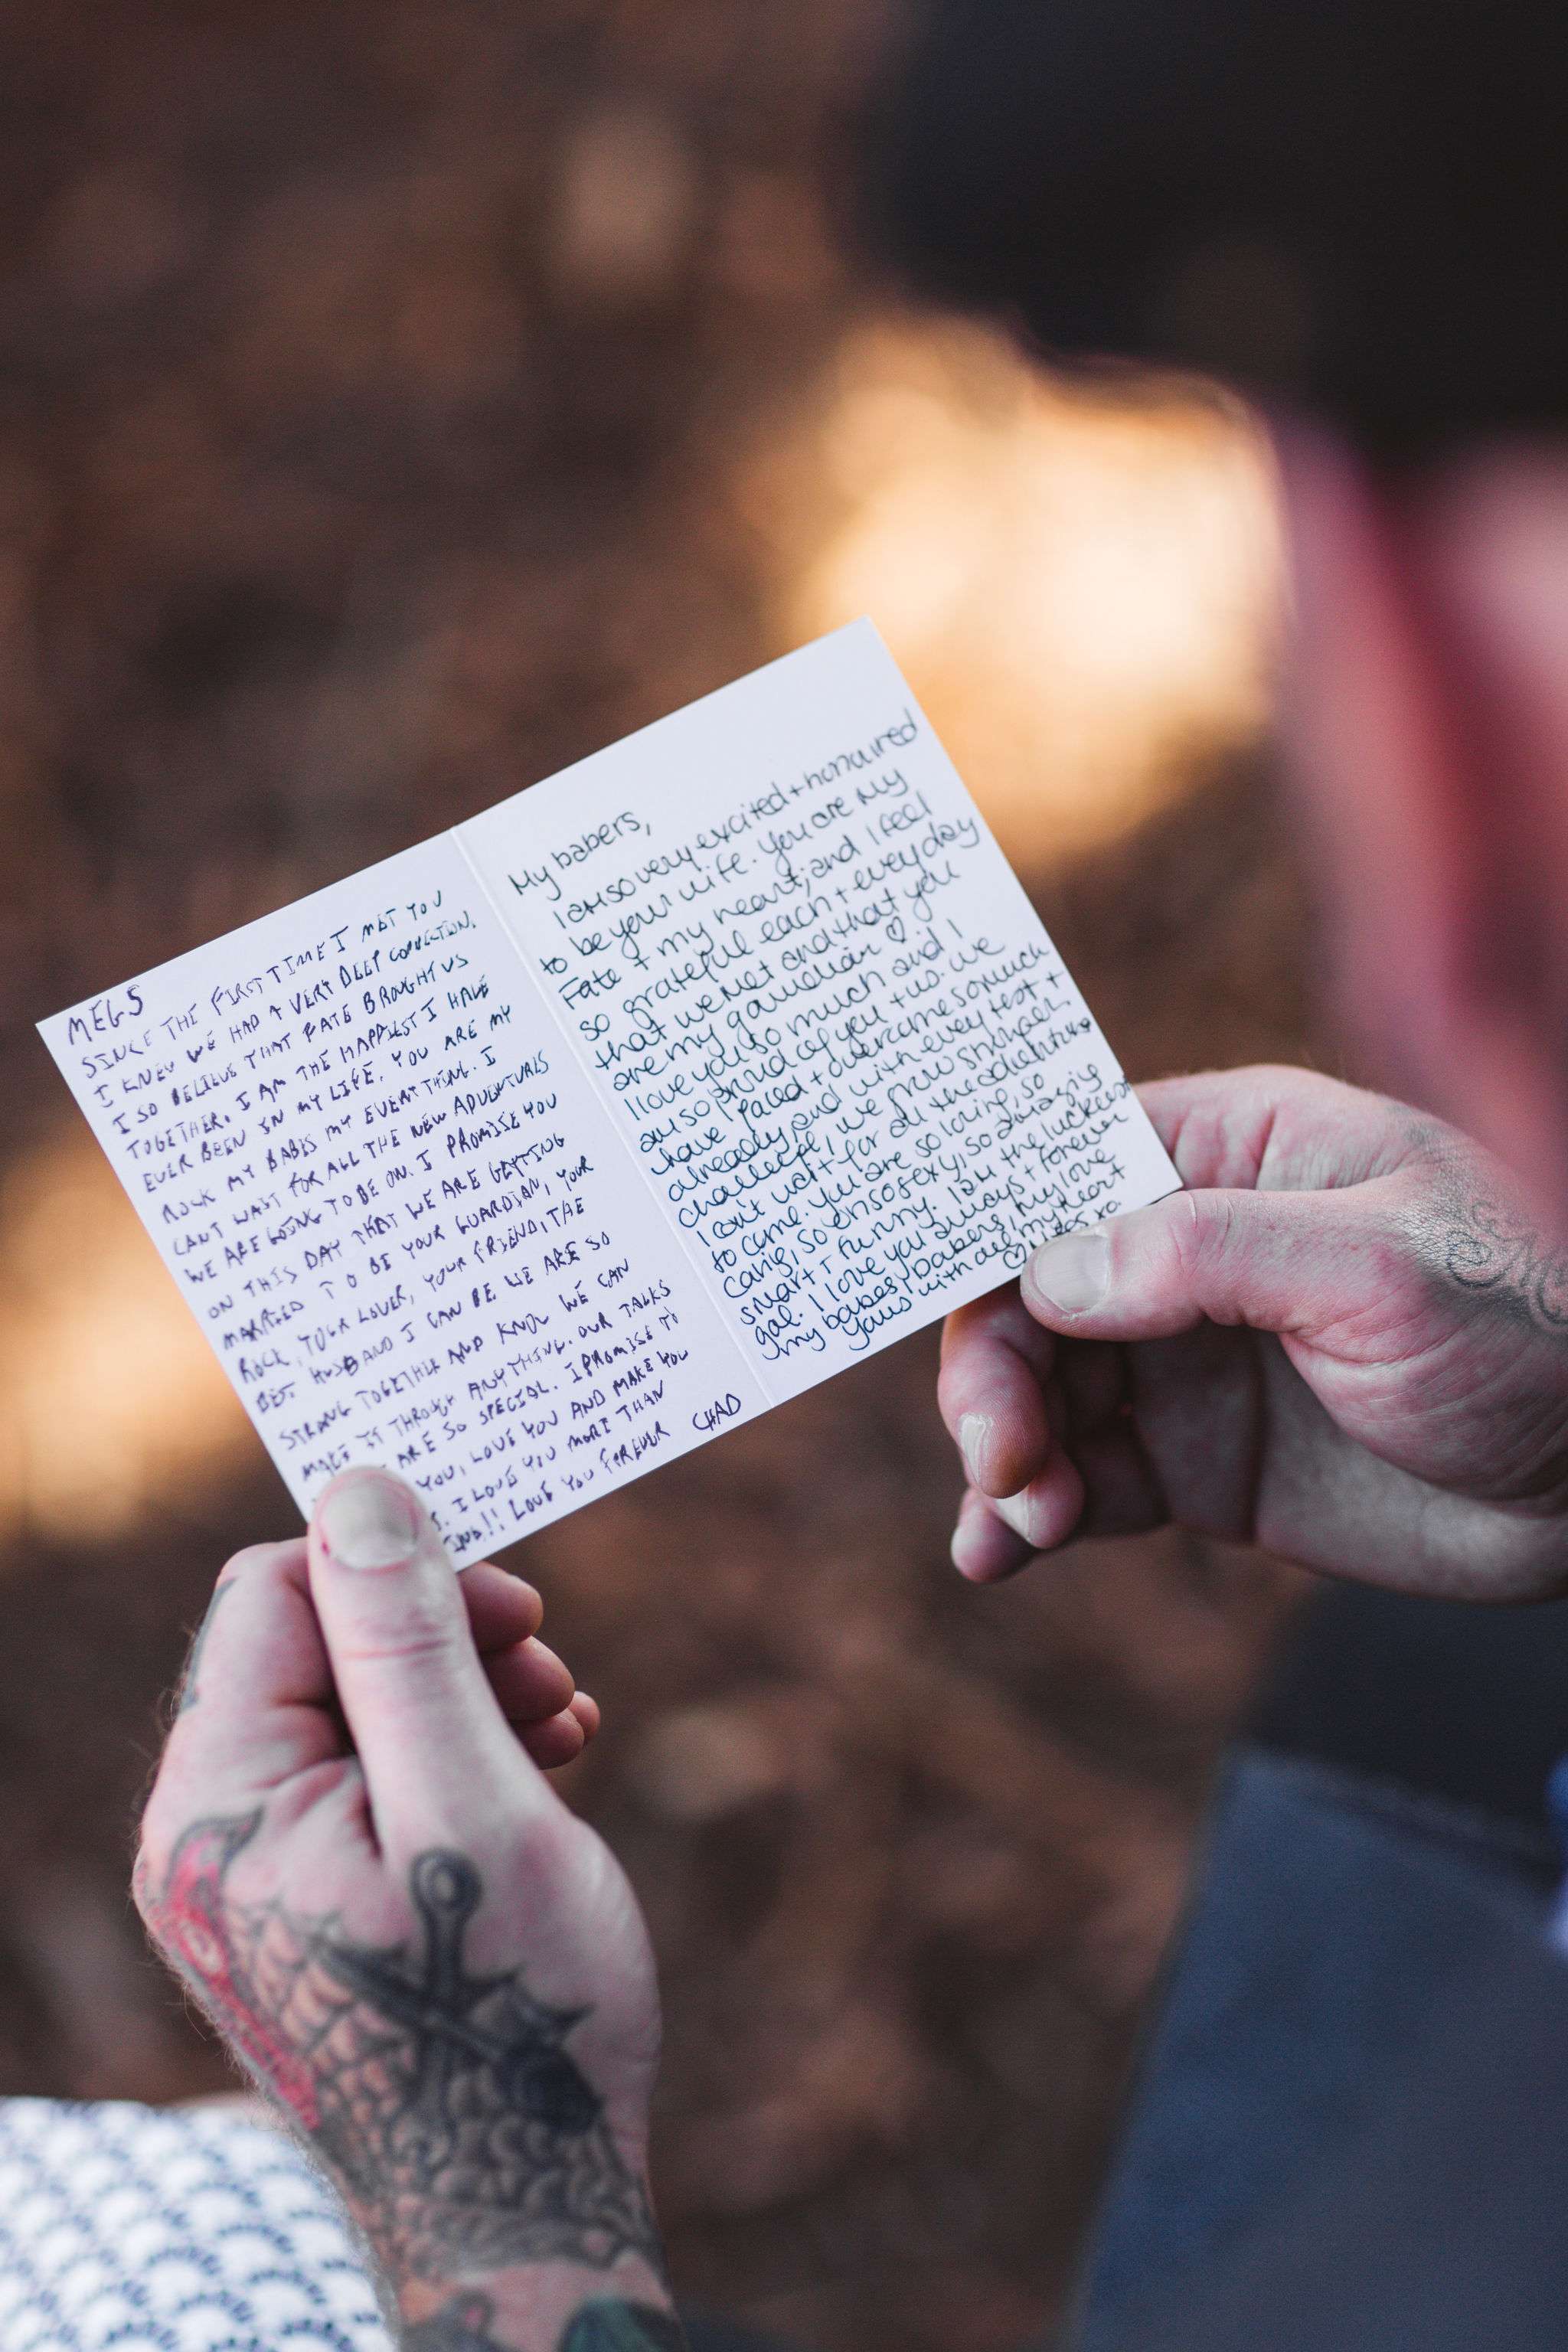 MEGS
SINCE THE FIRST TIME I MET YOU
I KNEW WE HAD A VERY DEEP CONNECTION.
I SO BELIEVE THAT FATE BROUGHT US
TOGETHER. I AM THE HAPPIEST I HAVE
EVER BEEN IN MY LIFE. YOU ARE MY
ROCK MY BABES MY EVERYTHING. I
CANT WAIT FOR ALL THE NEW ADVENTURES
WE ARE GOING TO BE ON. I PROMISE YOU
ON THIS DAY THAT WE ARE GETTING
MARRIED TO BE YOUR GUARDIAN, YOUR
ROCK, YOUR LOVER, YOUR FRIEND, THE
BEST HUSBAND I CAN BE. WE ARE SO
STRONG TOGETHER AND KNOW WE CAN
MAKE IT THROUGH ANYTHING. OUR TALKS
ARE SO SPECIAL. I PROMISE TO
YOU, LOVE YOU AND MAKE YOU
I LOVE YOU MORE THAN
!! LOVE YOU FOREVER CHAD
My babers,
I am so very excited + honoured
to be your wife. You are my
Fate + my heart, and I feel
so grateful each + every day
that we met and that you
are my guardian ♡
I love you so much and I
am so proud of you + us. We
have faced + overcome so much
already, and with every test +
challenge, we grow stronger.
I can't wait for all the adventures
to come. You are so loving, so
caring, so sexy, so amazing
smart + funny. I am the luckiest
gal. I love you always + forever
my babes, babers, my love
Yours with all my heart
♡ Megs xo